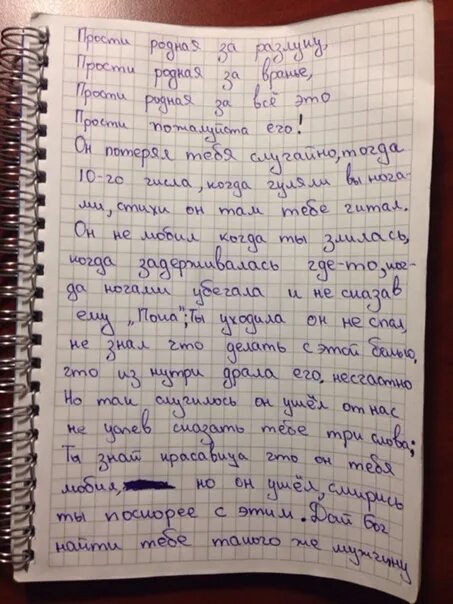 Прости родная за разлуку,
Прости родная за вранье,
Прости родная за всё это
Прости пожалуйста его!
Он потерял тебя случайно, тогда
10-го числа, когда гуляли вы ночa-
ми, стихи он там тебе читал.
Он не любил когда ты злилась,
когда задерживалась где-то, ког-
да ночами убегала и не сказав
ему „Пока"; Ты уходила он не спал,
не знал что делать с этой болью,
что из нутри драла его, несчастно
Но так случилось он ушёл от нас
не успев сказать тебе три слова;
Ты знай красавица что он тебя
любил, но он ушёл, смирись
ты поскорее с этим. Дай Бог
найти тебе такого же мужчину